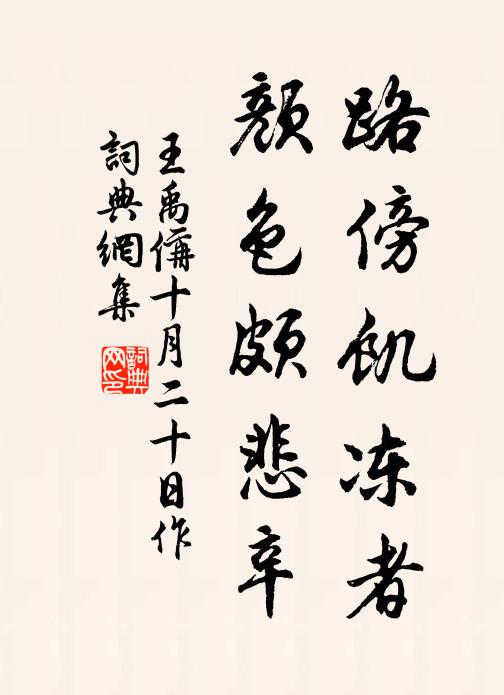 路傍飢凍者
顏色頗悲辛
王禹偁十月二十日作
詞典網集
詞典网印